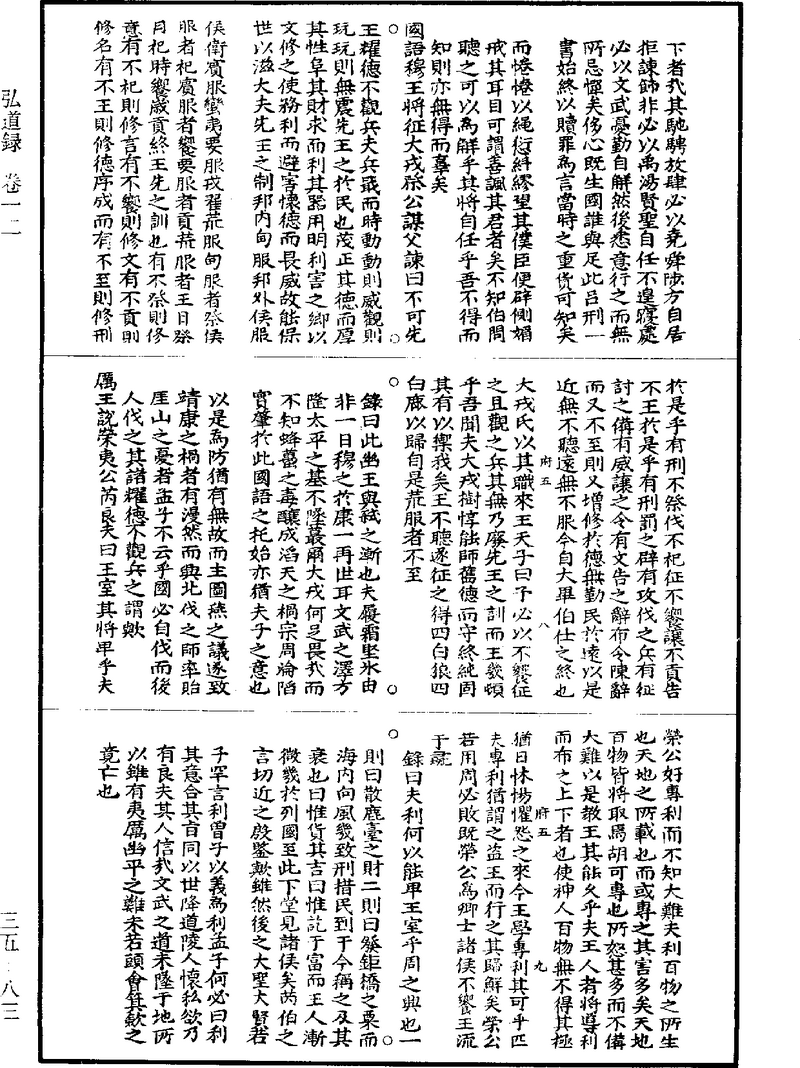 弘道録 卷一二
下者哉其馳騁放肆必以堯舜陟方自居
拒諫飾非必以禹湯賢聖自任不遑寢處
必以文武憂勤自解然後悉意行之而無
所忌憚矣侈心既生國誰與足此呂刑一
書始終以贖罪為言當時之重貨可知矣
而惓惓以繩愆糾繆望其僕臣便辟側媚
戒其耳目可謂喜諷其君者矣不知伯冏
聽之可以為解乎其將自任乎吾不得而
知則亦無得而辜矣
國語穆王將征犬戎祭公謀父諫曰不可先
王耀德不觀兵夫兵戢而時動動則威觀則
玩玩則無震先王之於民也茂正其德而厚
其性阜其財求而利其器用明利害之鄉以
文修之使務利而避害懷德而畏威故能保
世以滋大夫先王之制邦內甸服邦外侯服
侯衛賓服蠻夷要服戎翟荒服甸服者祭侯
服者祀賓服者饗要服者貢荒服者王日祭
月祀時饗歲貢終王先之訓也有不祭則修
意有不祀則修言有不饗則修文有不貢則
修名有不王則修德序成而有不至則修刑
於是乎有刑不祭伐不祀征不饗讓不貢告
不王於是乎有刑罰之辟有攻伐之兵有征
討之備有威讓之令有文告之辭布令陳辭
而又不至則又增修於德無勤民於遠以是
近無不聽遠無不服今自大畢伯仕之終也
府五 八
犬戎氏以其職來王天子曰予必以不饗征
之且觀之兵其無乃廢先王之訓而王幾頓
乎吾聞夫犬戎樹惇能師舊德而守終純固
其有以禦我矣王不聽遂征之得四白狼四
白鹿以歸自是荒服者不至
錄曰此幽王與弒之漸也夫履霜堅冰由
非一日穆之於康一再世耳文武之澤方
隆太平之基不墜蕞爾犬戎何足畏哉而
不知蜂蠆之毒釀成滔天之禍宗周淪陷
實肇於此國語之托始亦猶夫子之意也
以是為防猶有無故而主圖燕之議遂致
靖康之禍者有漫然而興北伐之師率貽
厓山之憂者孟子不云乎國必自伐而後
人伐之其諸耀德不觀兵之謂歟
厲王說榮夷公芮良夫曰王室其將卑乎夫
榮公好專利而不知大難夫利百物之所生
也天地之所載也而或專之其害多矣天地
百物皆將取焉胡可專也所怒甚多而不備
大難以是教王其能久乎夫王人者將導利
而布之上下者也使神人百物無不得其極
府五 九
猶日怵惕懼怨之來今王學專利其可乎匹
夫專利猶謂之盜王而行之其歸鮮矣榮公
若用周必敗既榮公為卿士諸侯不饗王流
于彘
錄曰夫利何以能卑王室乎周之興也一
則曰散鹿臺之財二則曰發鉅橋之粟而
海內向風幾致刑措民到于今稱之及其
衰也曰惟貨其吉曰惟訖于富而王人漸
微幾於列國至此下堂見諸侯矣芮伯之
言切近之殷鑒歟雖然後之大聖大賢若
子罕言利曾子以義為利孟子何必曰利
其意合其旨同以世降道陵人懷私欲乃
有良夫其人信哉文武之道未墜于地所
以雖有夷厲幽平之難未若頭會箕斂之
竟亡也
三五·八三